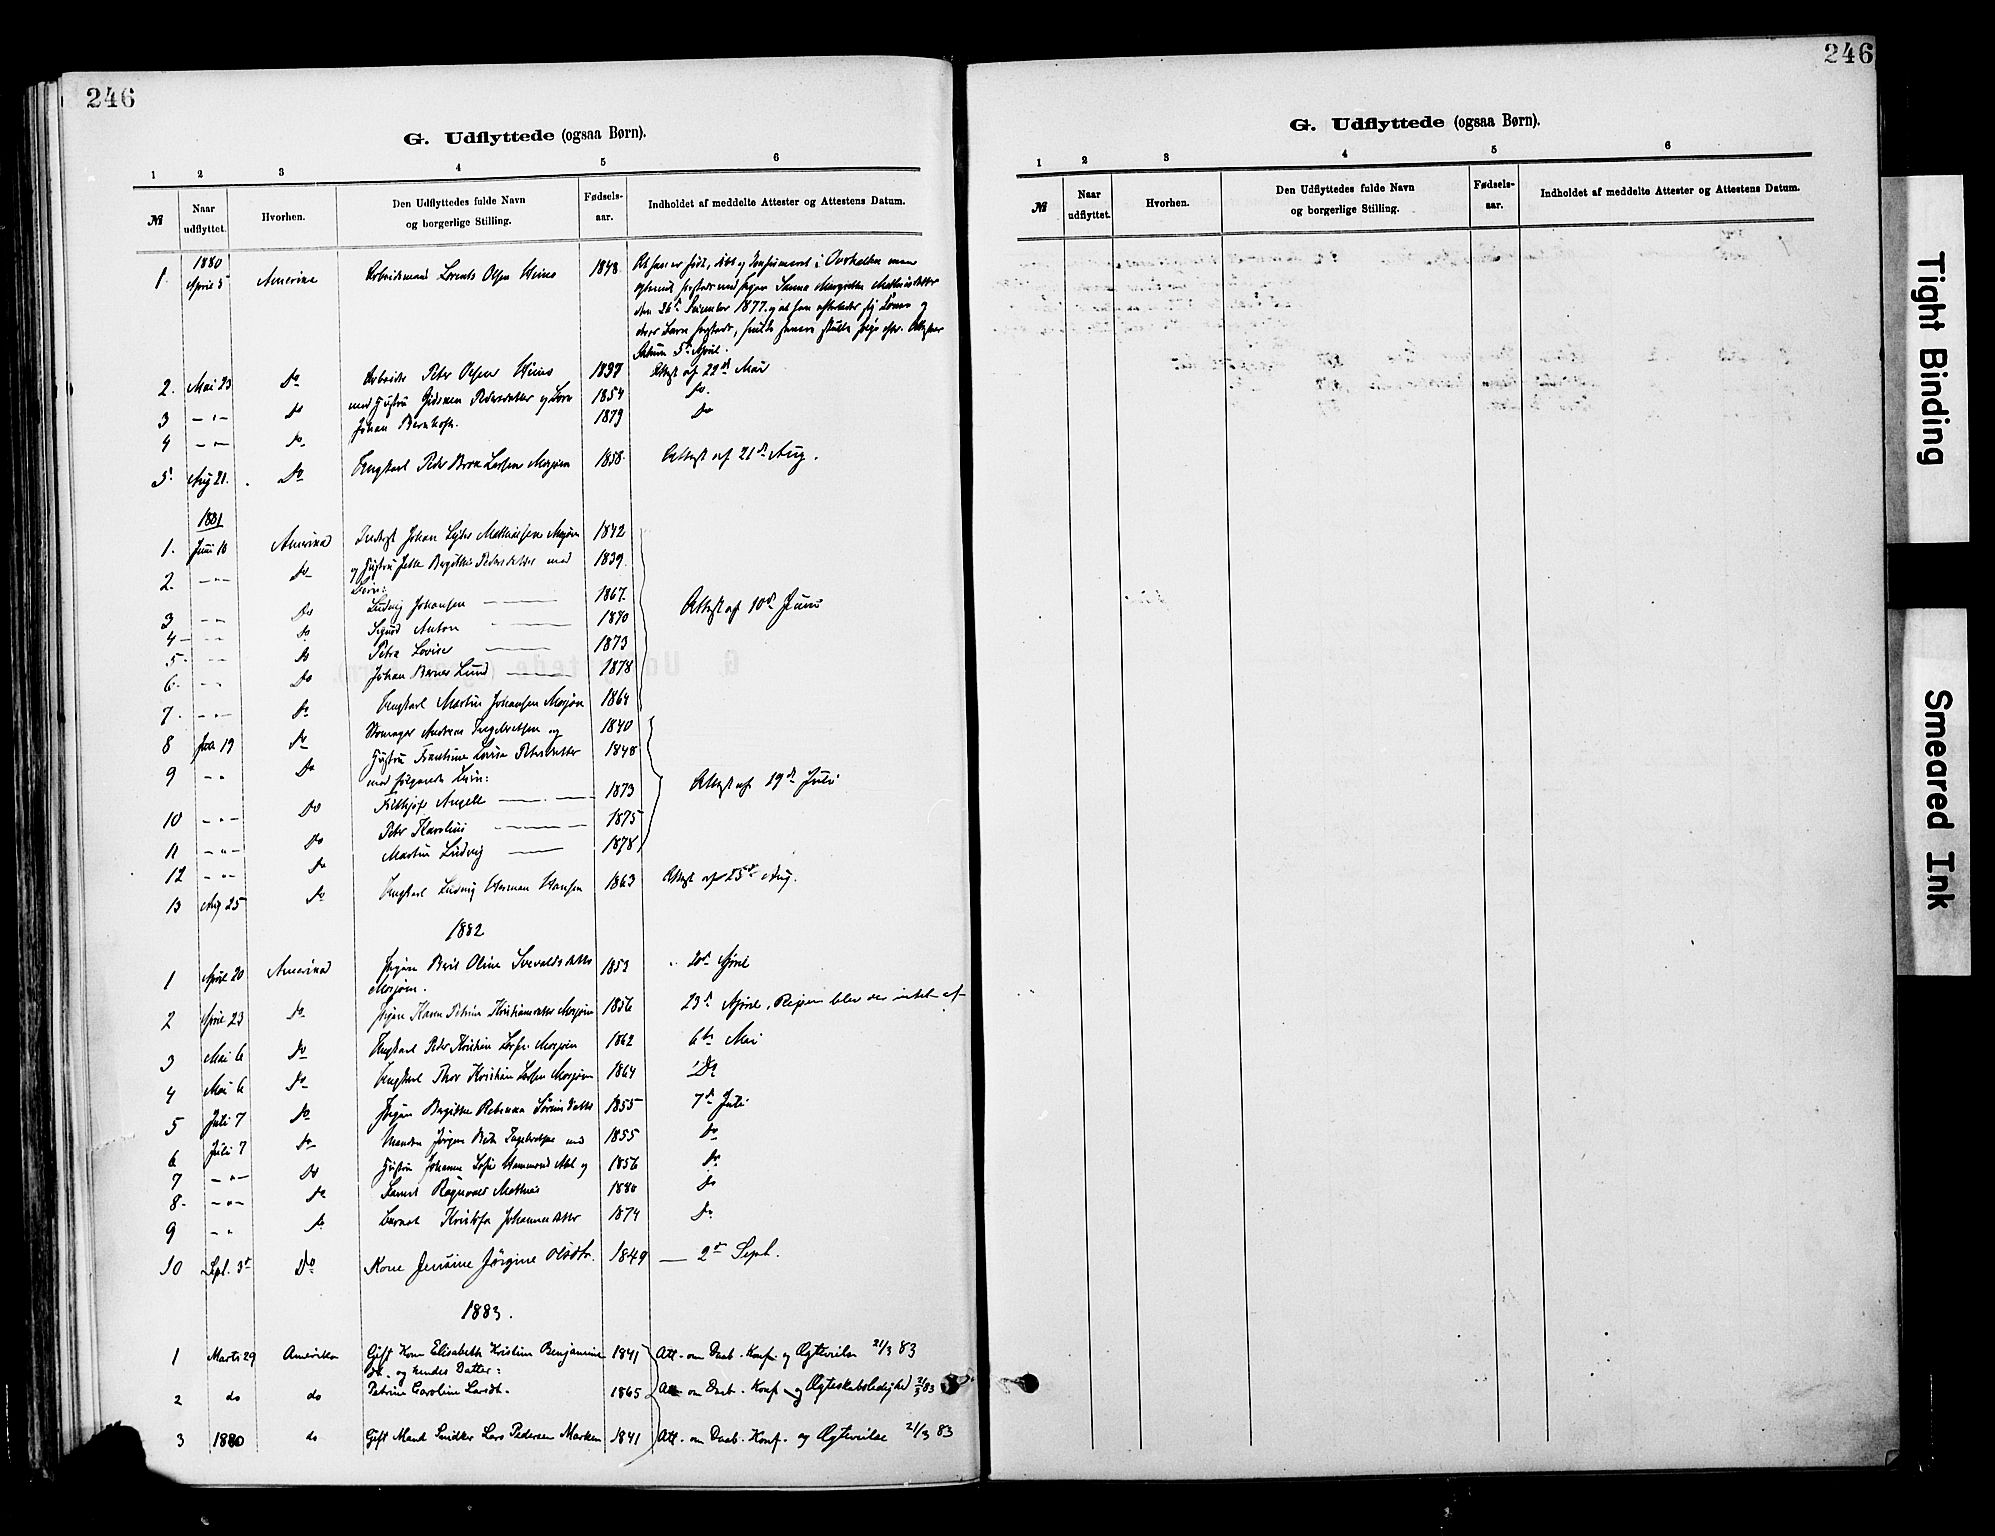 246
G. Udflyttede (ogsaa Børn).
1 2 3 4 5 6
№ Naar udflyttet. Hvorhen. Den Udflyttedes fulde Navn og borgerlige Stilling. Fødsels-aar. Indholdet af meddelte Attester og Attestens Datum.
1880
1. April 5 Amerika Arbeidsmand Lorents Olsen 1848. At han er født, døbt og konfirmeret i
den 26de 1877. og at han efterlader sig Kone og
Datum 5te April.
2. Mai 23 Do Arbeider Peter Olsen 1837 Attest af 22de Mai
3 — " — Do med Hustru Pedersdatter og Barn 1854 Do.
4 — " — Do Johan Bernhoft. 1879 Do
5. Aug 21. Do Ungkarl Peder Larsen Mosjøen 1858. Attest af 21de Aug.
1881
1. Juni 10 Amerika Inderst Johan Mathisen Mosjøen 1842
2. — " — Do og Hustru Birgitte Pedersdatter med 1839.
Børn:
3 — " — Do Ludvig Johansen 1867.
4 — " — Do Sigurd Anton 1870 Attest af 10de Juni
5. — " — Do Petra Lovise 1873
6. — " — Do Johan Berner Lund 1878
7. — " — Do Ungkarl Martin Johansen Mosjøen 1864
8 19 Do Skomager Andreas Ingebretsen og 1840
9 — " — Do Hustru Lovise Petersdatter 1848
med følgende Børn:
10 — " — Do Fridthjof Angell 1873 Attest af 19de Juli
11 — " — Do Peter Karolius 1875
12 — " — Do Martin Ludvig 1878
13 Aug 25 Do Ungkarl Ludvig Herman Hansen 1863 Attest af 25de Aug.
1882
1 April 20 Amerika Pigen Berit Oline 1853 " 20de April
Mosjøen.
2 April 23 Do Pigen Karen Petrine Kristiansdatter Mosjøen 1856 23de April. Reisen blev der intet af
3 Mai 6 Do Ungkarl Peter Kristian Larsen Mosjøen 1862 6te Mai
4 Mai 6 Do Ungkarl Thor Kristian Larsen Mosjøen 1864 Do
5 Juli 7 Do Pigen Birgitte Rebekka Sørensdatter 1855 7de Juli
6 Juli 7 Do Manden Jørgen Ingebretsen med 1855 Do
7 — " — Do Hustru Johanna Sofie og 1856 Do
8. — " — Do Barnet Ragnvald Mathias 1880 Do
9 — " Do Barnet Johannesdatter 1874 Do
10 Sept. 3de Do Kone Jensine Jørgine Olsdtr. 1849 — 2de Sept.
1883.
1 Marts 29 Amerika Gift Kone Elisabeth Kristine Benjamins 1841 Att. om Daab. Konf. og Ægtevielse 21/3 83
dt. og hendes Datter:
2 do do Petrine Caroline Larsdt. 1865 Att om Daab. Konf. og Ægteskabsledighed 21/3 83
3 1880 do Gift Mand Snedker Lars Pedersen Marken 1841 Att. om Daab. Konf. og Ægtevielse 21/3 83
246
G. Udflyttede (ogsaa Børn).
1 2 3 4 5 6
№ Naar udflyttet. Hvorhen. Den Udflyttedes fulde Navn og borgerlige Stilling. Fødsels-aar. Indholdet af meddelte Attester og Attestens Datum.
Tight Binding
Smeared Ink